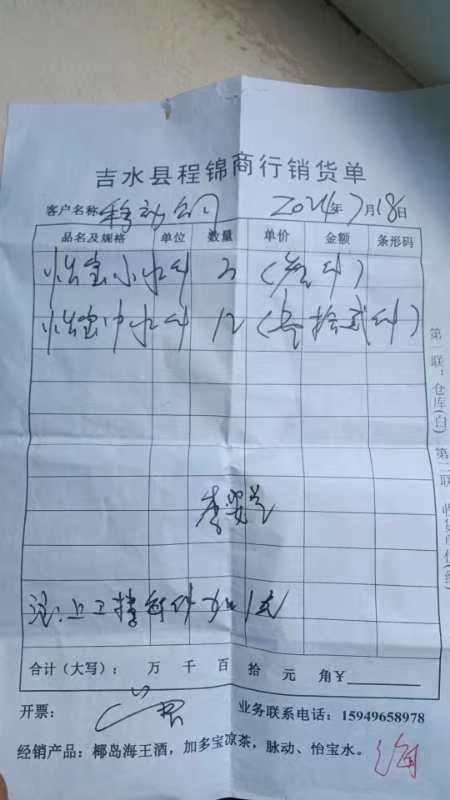 吉水县程锦商行销货单
客户名称 移动公司 2024年7月18日
品名及规格 单位 数量 单价 金额 条形码
怡宝小水 件
怡宝中水 件 12 (壹拾贰件)
注:上工楼每件加1元
合计(大写): 万 千 百 拾 元 角¥
开票:
业务联系电话:15949658978
经销产品:椰岛海王酒,加多宝凉茶,脉动、怡宝水。
第一联:仓库(白) 第二联